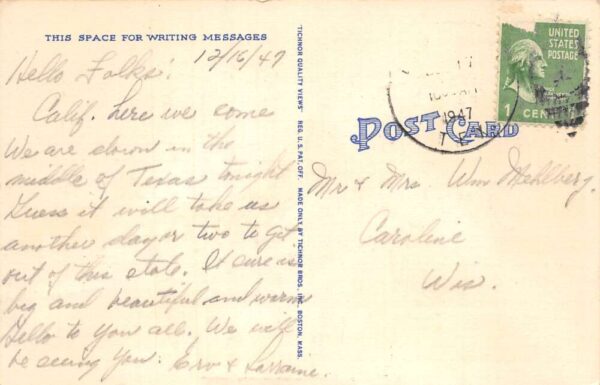 THIS SPACE FOR WRITING MESSAGES
12/16/47
Hello Folks:
Calif. here we come
We are down in the
middle of Texas tonight
Guess it will take us
another day or two to get
out of this state. It sure is
big and beautiful and warm
Hello to You all. We will
be seeing You. Erv & Lorraine.
TICHNOR QUALITY VIEWS REG. U.S. PAT. OFF. MADE ONLY BY TICHNOR BROS., INC., BOSTON, MASS.
POST CARD
UNITED
STATES
POSTAGE
1 CENT
17
1947
TEX
Mr & Mrs. Wm Mehlberg.
Caroline
Wis.